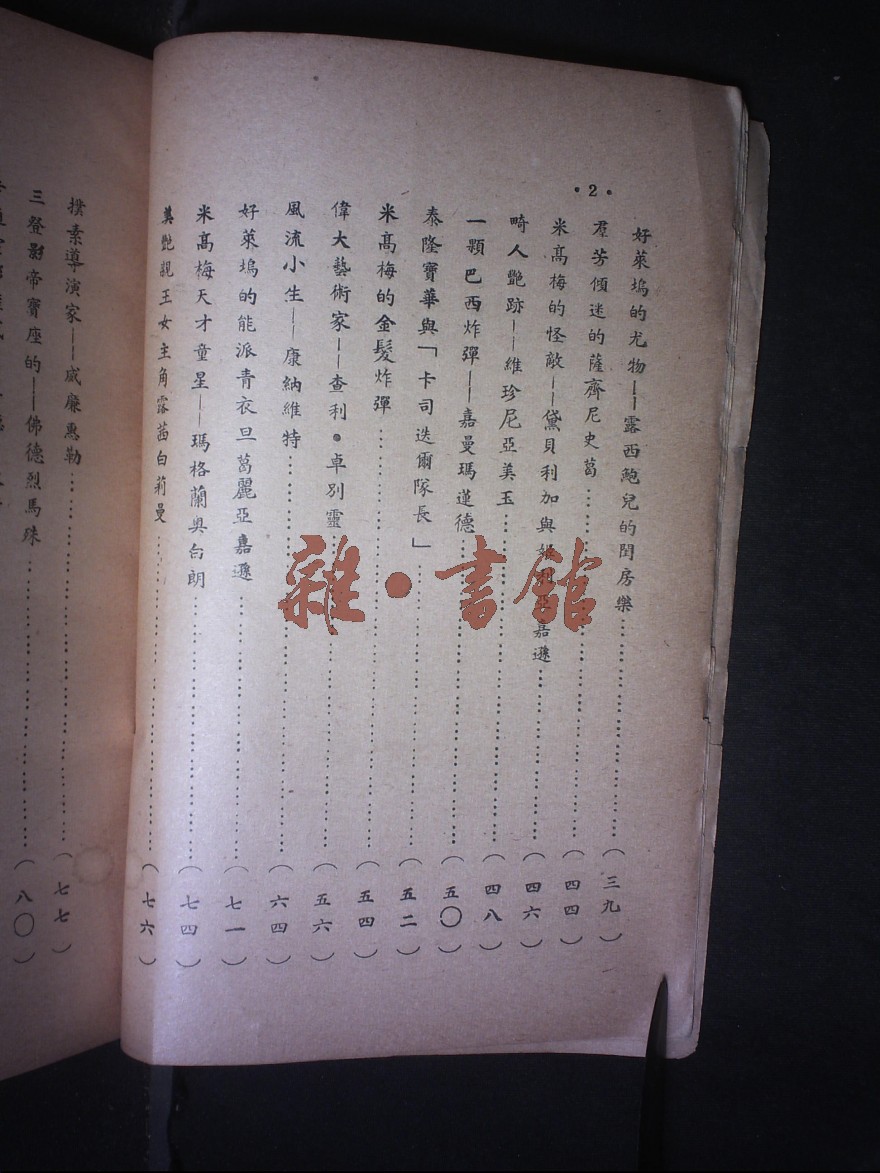 •2•
好萊塢的尤物——露西鮑兒的閨房樂……(三九)
羣芳傾迷的薩齊尼史葛……(四四)
米高梅的怪敵——黛貝利加與 嘉遜……(四六)
畸人艷跡——維珍尼亞美玉……(四八)
一顆巴西炸彈——嘉曼瑪蓮德……(五〇)
泰隆寶華與「卡司迭爾隊長」……(五二)
米高梅的金髮炸彈……(五四)
偉大藝術家——查利•卓別靈……(五六)
風流小生——康納維特……(六四)
好萊塢的能派青衣旦葛麗亞嘉遜……(七一)
米高梅天才童星——瑪格蘭奥白朗……(七四)
艷親王女主角露茜白莉曼……(七六)
樸素導演家——威廉惠勒……(七七)
三登影帝寶座的——佛德烈馬殊……(八〇)
雜•書館